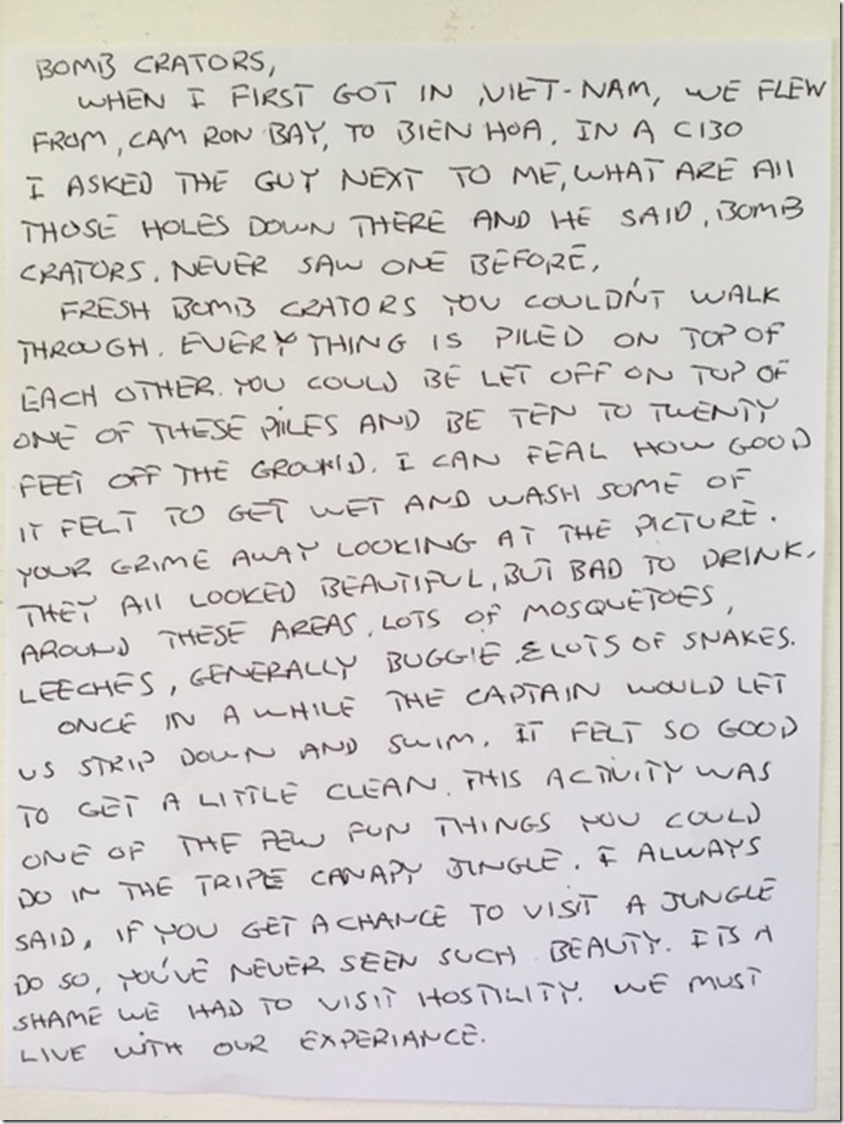 BOMB CRATORS,
WHEN I FIRST GOT IN, VIET-NAM, WE FLEW
FROM, CAM RON BAY, TO BIEN HOA. IN A C130
I ASKED THE GUY NEXT TO ME, WHAT ARE All
THOSE HOLES DOWN THERE AND HE SAID, BOMB
CRATORS. NEVER SAW ONE BEFORE.
FRESH BOMB CRATORS YOU COULDN'T WALK
THROUGH. EVERYTHING IS PILED ON TOP OF
EACH OTHER. YOU COULD BE LET OFF ON TOP OF
ONE OF THESE PIILES AND BE TEN TO TWENTY
FEET OFF THE GROUND. I CAN FEAL HOW GOOD
IT FELT TO GET WET AND WASH SOME OF
YOUR GRIME AWAY LOOKING AT THE PICTURE.
THEY All LOOKED BEAUTIFUL, BUT BAD TO DRINK.
AROUND THESE AREAS, LOTS OF MOSQUETOES,
LEECHES, GENERALLY BUGGIE & LOTS OF SNAKES.
ONCE IN A WHILE THE CAPTAIN WOULD LET
US STRIP DOWN AND SWIM. IT FELT SO GOOD
TO GET A LITTLE CLEAN. THIS ACTIVITY WAS
ONE OF THE FEW FUN THINGS YOU COULD
DO IN THE TRIPLE CANAPY JUNGLE. I ALWAYS
SAID, IF YOU GET A CHANCE TO VISIT A JUNGLE
DO SO, YOU'VE NEVER SEEN SUCH BEAUTY. ITS A
SHAME WE HAD TO VISIT HOSTILITY. WE MUST
LIVE WITH OUR EXPERIANCE.